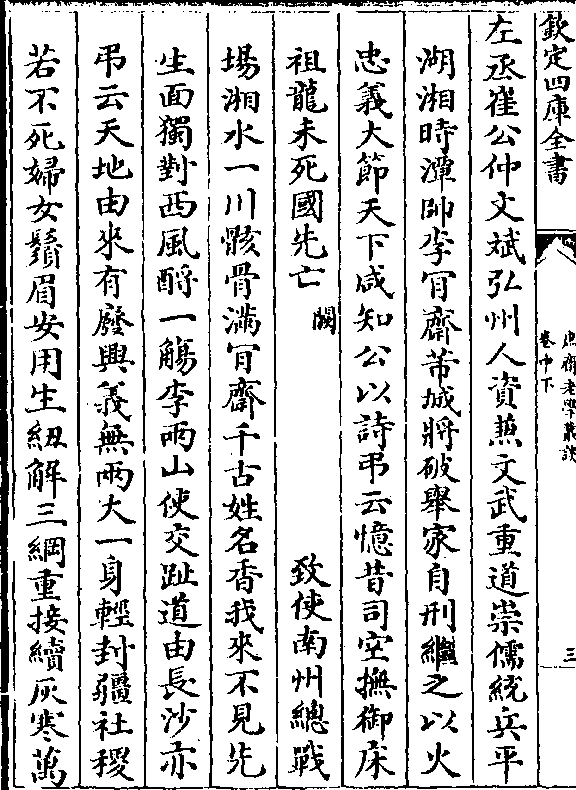 欽定四庫全書
庶齋老學叢談
卷中下
三
左丞崔公仲文斌弘州人資兼文武重道崇儒統兵平
湖湘時潭帥李肎齋芾城將破舉家自刑繼之以火
忠義大節天下咸知公以詩弔云憶昔司空撫御床
祖龍未死國先亡 闕 致使南州總戰
場湘水一川骸骨滿肎齋千古姓名香我來不見先
生面獨對西風酹一觴李兩山使交趾道由長沙亦
弔云天地由來有廢興義無兩大一身輕封疆社稷
若不死婦女鬚眉安用生紐解三綱重接續灰寒萬